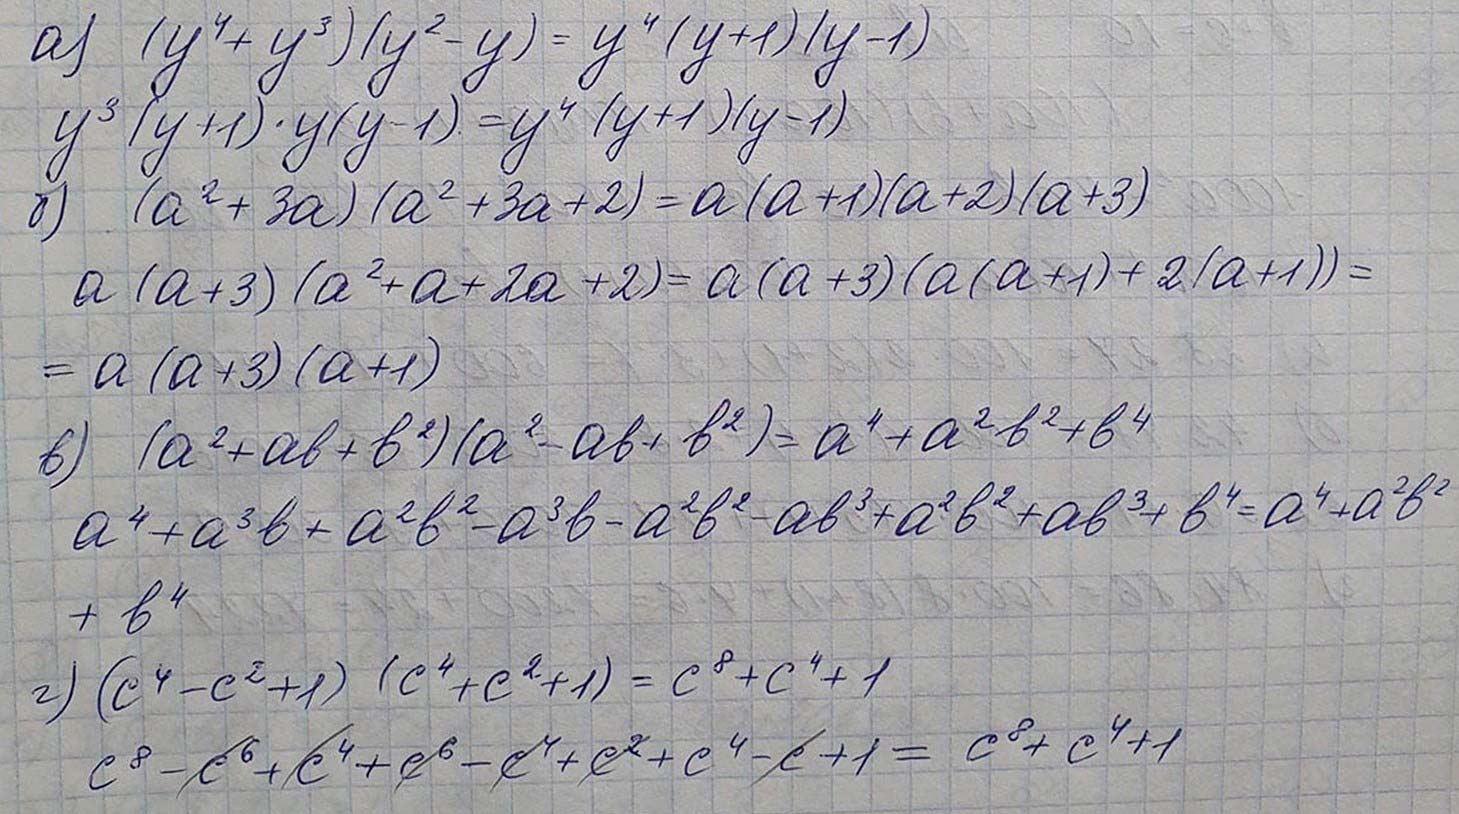 а) (y⁴ + y³)(y² - y) = y⁴(y+1)(y-1)
y³(y+1)·y(y-1) = y⁴(y+1)(y-1)
б) (a² + 3a)(a² + 3a + 2) = a(a+1)(a+2)(a+3)
a(a+3)(a² + a + 2a + 2) = a(a+3)(a(a+1) + 2(a+1)) =
= a(a+3)(a+1)
в) (a² + ab + b²)(a² - ab + b²) = a⁴ + a²b² + b⁴
a⁴ + a³b + a²b² - a³b - a²b² - ab³ + a²b² + ab³ + b⁴ = a⁴ + a²b²
+ b⁴
г) (c⁴ - c² + 1) (c⁴ + c² + 1) = c⁸ + c⁴ + 1
c⁸ - c⁶ + c⁴ + c⁶ - c⁴ + c² + c⁴ - c + 1 = c⁸ + c⁴ + 1